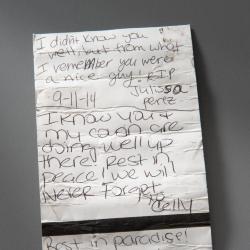 I didn't know you
well but from what
I remember you were
a nice guy! RIP
Julissa
9-11-14 perez
I know you &
my cousin are
doing well up
there! Rest in
peace! we will
Never Forget.
Celly
Rest in paradise!